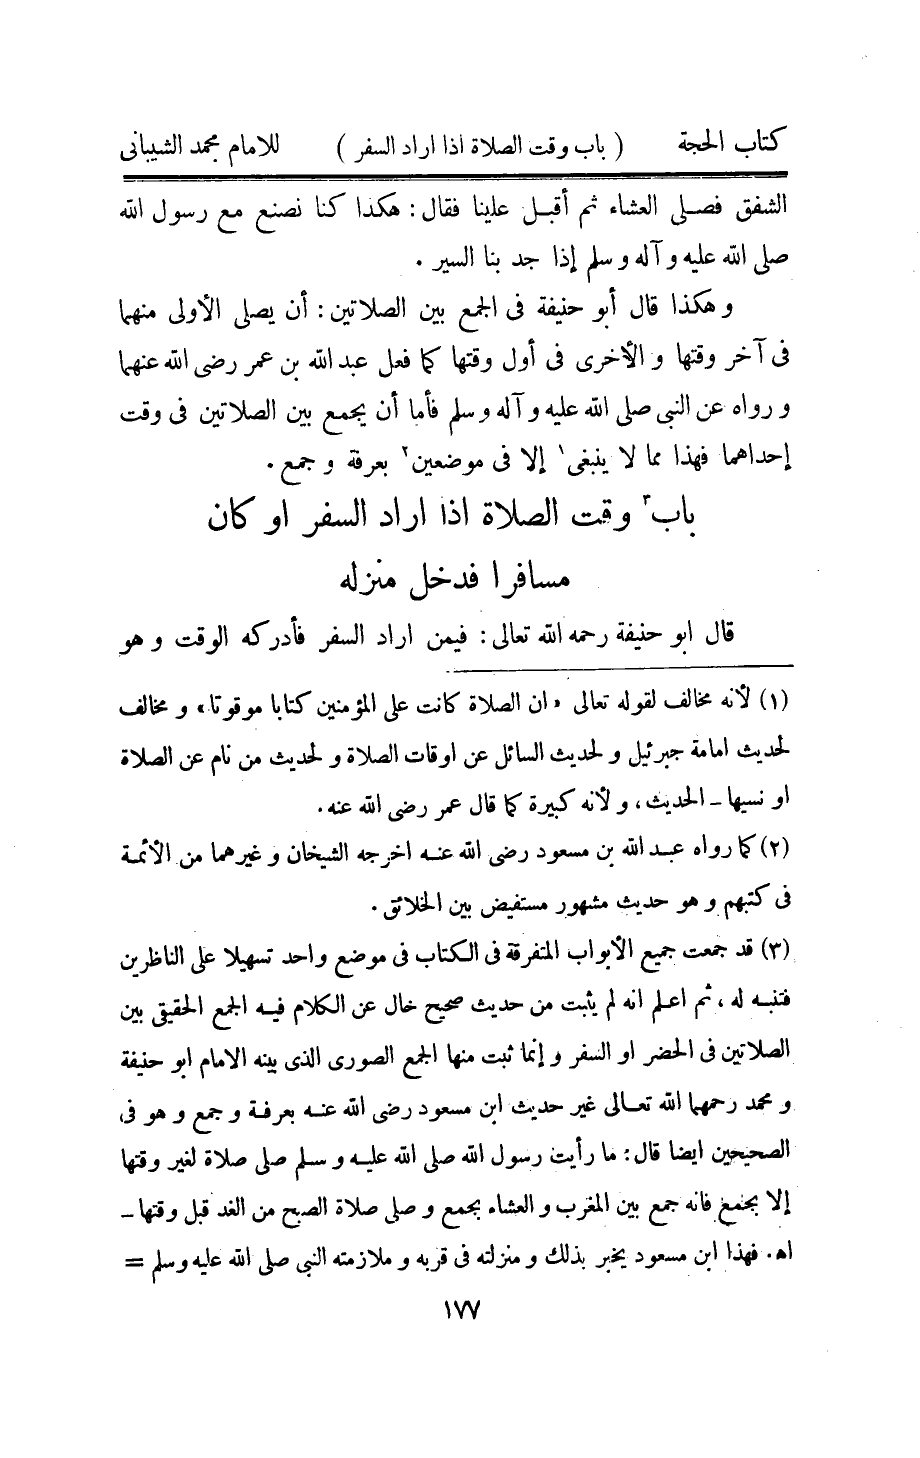 كتاب الحجة ( باب وقت الصلاة اذا اراد السفر ) للامام محمد الشيبانى
الشفق فصلى العشاء ثم أقبل علينا فقال : هكذا كنا نصنع مع رسول الله
صلى الله عليه و آله و سلم إذا جد بنا السير .
و هكذا قال أبو حنيفة فى الجمع بين الصلاتين : أن يصلى الأولى منهما
فى آخر وقتها و الأخرى فى أول وقتها كما فعل عبد الله بن عمر رضى الله عنهما
و رواه عن النبى صلى الله عليه و آله و سلم فأما أن يجمع بين الصلاتين فى وقت
إحداهما فهذا مما لا ينبغى١ إلا فى موضعين٢ بعرفة و جمع .
باب٣ وقت الصلاة اذا اراد السفر او كان
مسافرا فدخل منزله
قال ابو حنيفة رحمه الله تعالى : فيمن اراد السفر فأدركه الوقت و هو
(١) لأنه مخالف لقوله تعالى «ان الصلاة كانت على المؤمنين كتابا موقوتا» و مخالف
لحديث امامة جبرئيل و لحديث السائل عن اوقات الصلاة و لحديث من نام عن الصلاة
او نسيها ـ الحديث ، و لأنه كبيرة كما قال عمر رضى الله عنه .
(٢) كما رواه عبد الله بن مسعود رضى الله عنه اخرجه الشيخان و غيرهما من الأئمة
فى كتبهم و هو حديث مشهور مستفيض بين الخلائق .
(٣) قد جمعت جميع الأبواب المتفرقة فى الكتاب فى موضع واحد تسهيلا على الناظرين
فتنبه له ، ثم اعلم انه لم يثبت من حديث صحيح خال عن الكلام فيه الجمع الحقيقى بين
الصلاتين فى الحضر او السفر و إنما ثبت منها الجمع الصورى الذى بينه الامام ابو حنيفة
و محمد رحمهما الله تعالى غير حديث ابن مسعود رضى الله عنه بعرفة و جمع و هو فى
الصحيحين ايضا قال : ما رأيت رسول الله صلى الله عليه و سلم صلى صلاة لغير وقتها
إلا بجمع فانه جمع بين المغرب و العشاء بجمع و صلى صلاة الصبح من الغد قبل وقتها ـ
اه . فهذا ابن مسعود يخبر بذلك و منزلته فى قربه و ملازمته النبى صلى الله عليه وسلم =
١٧٧